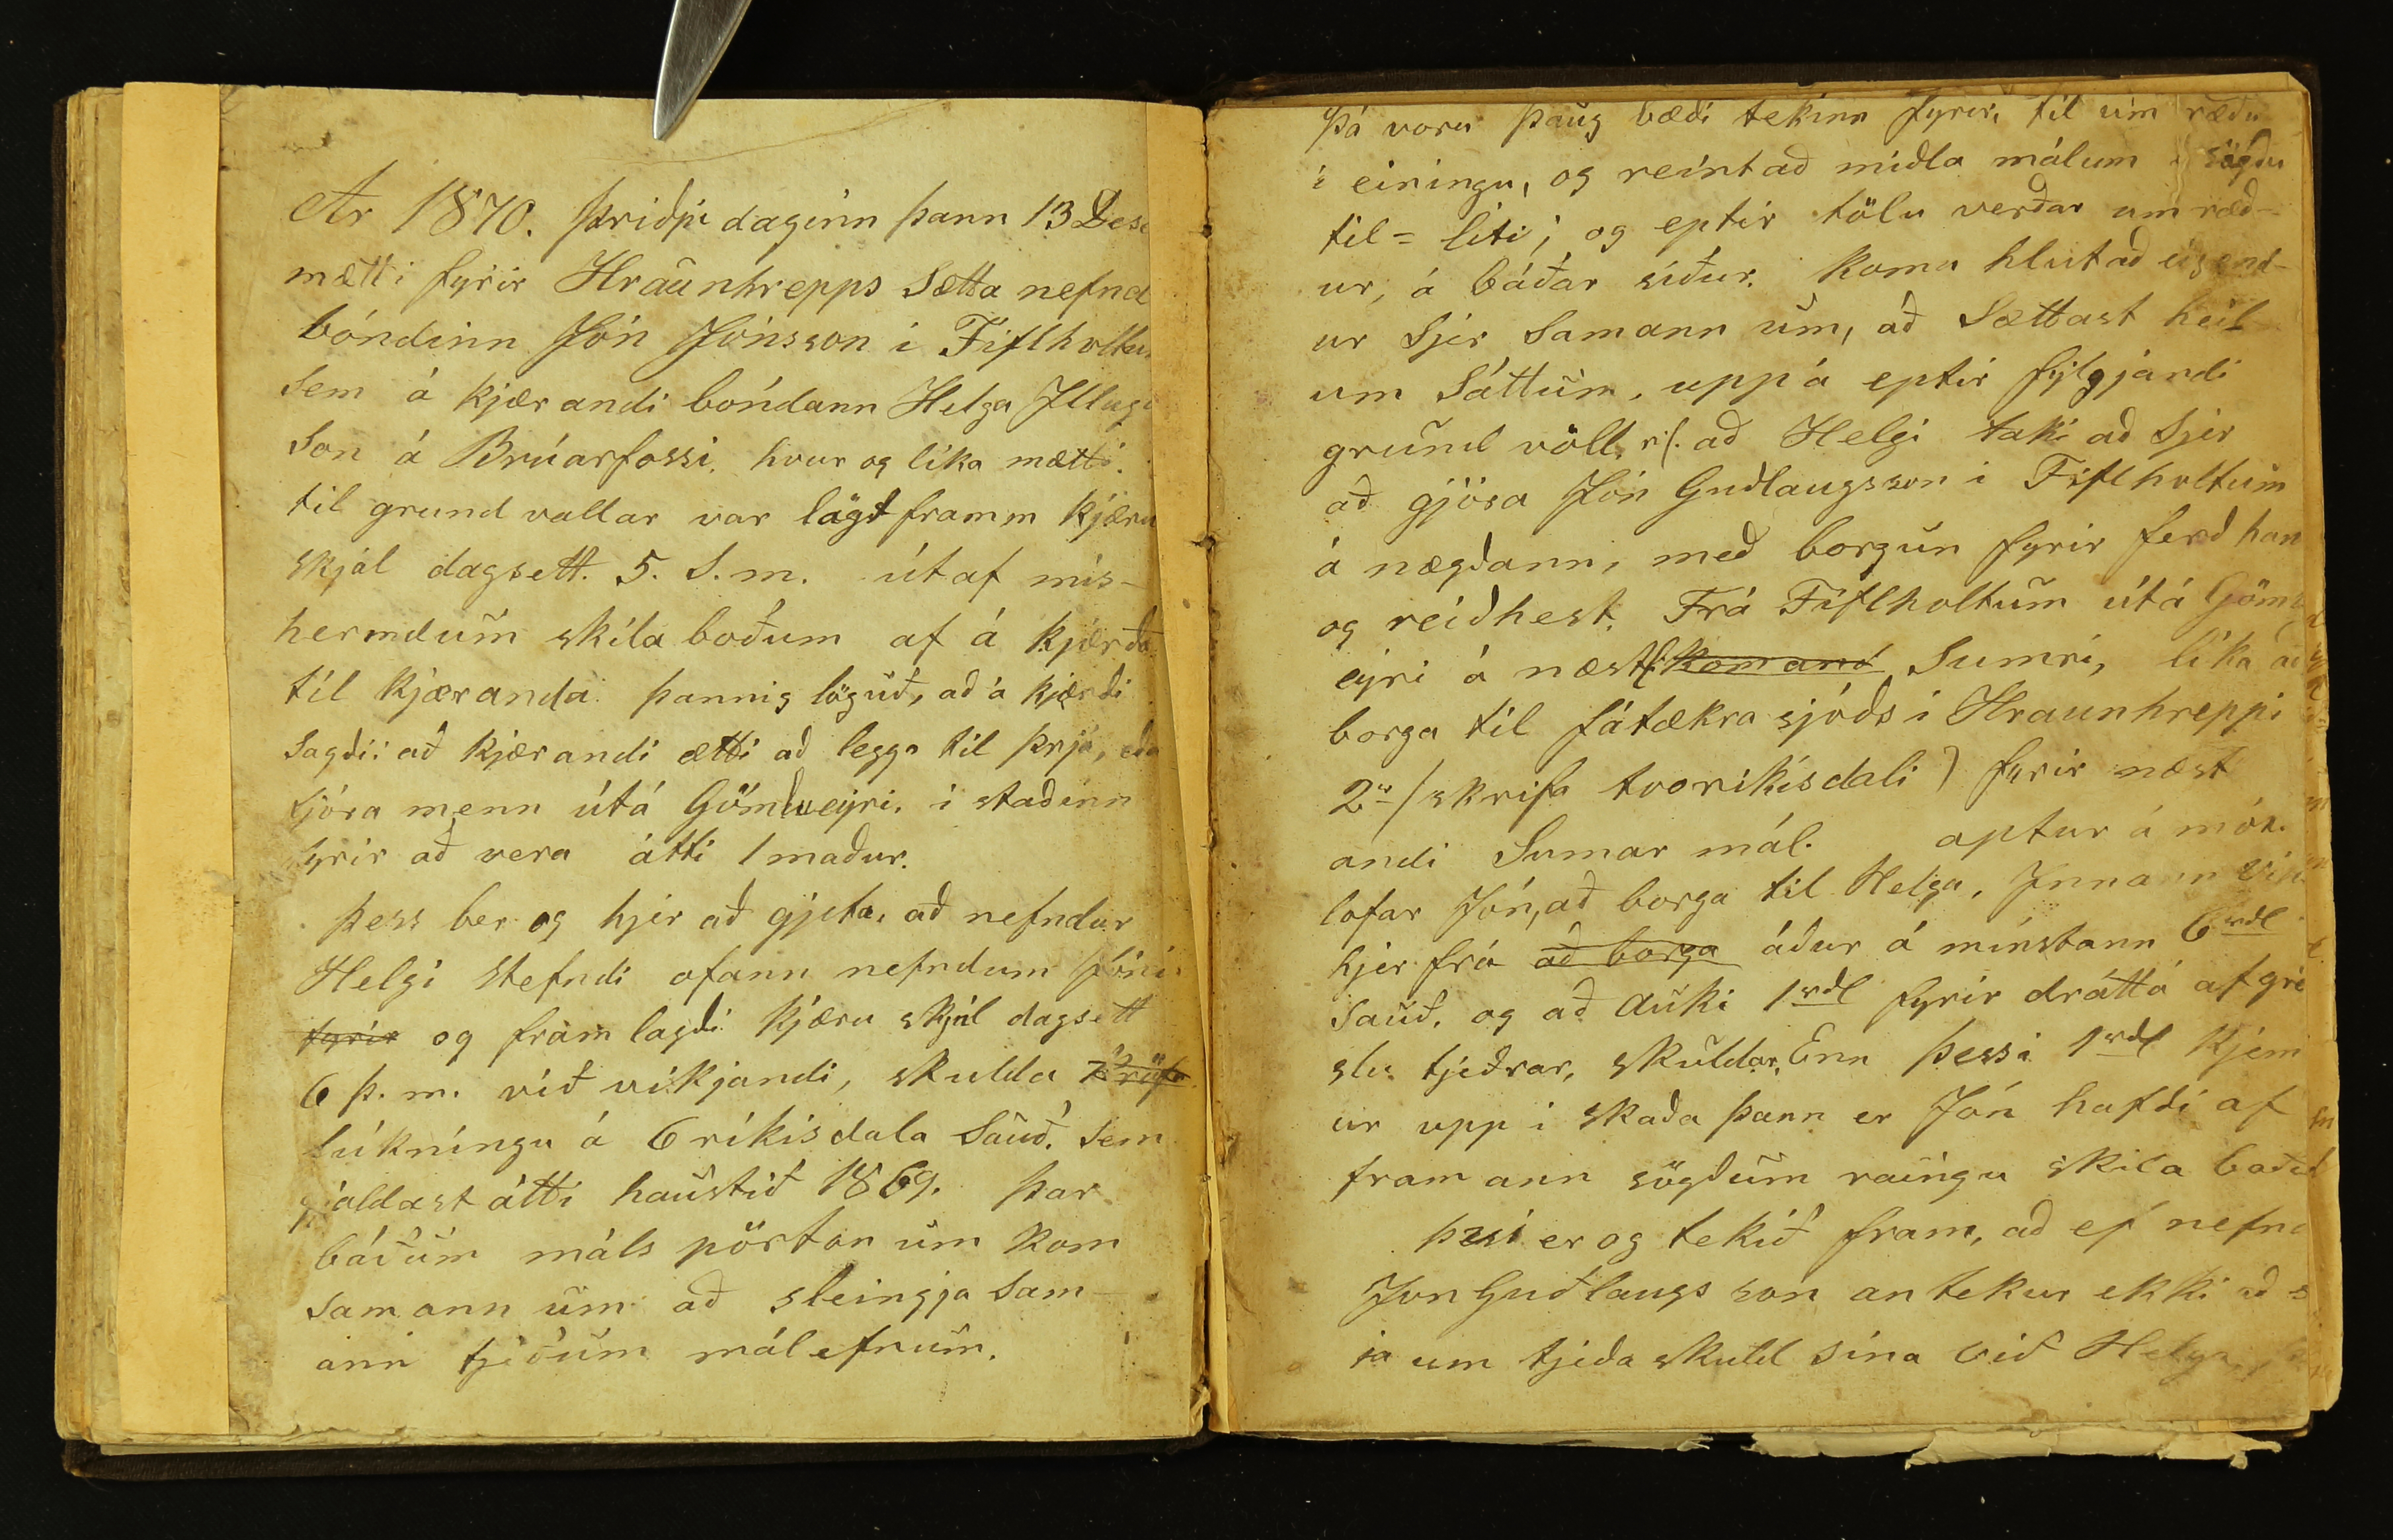 Ar 1870. Þriðju daginn þann 13 Des
mætti fyrir Hraunhrepps Sætta nefnd
bóndinn Jón Jónsson i Fiflholtu
Sem á kjærandi bóndann Helga Illug
Son á Brúarfossi, hvur og líka mætti.
til grund vallar var lägt framm kjæru
skjal dagsett. 5. S. m. útaf mis-
hermdum skila boðum af á kjærða
til kjæranda þannig löguð, að á kjærdi
Sagdi: að kjærandi ætti að legga til þrjá, eda
fjóra menn útá Gömlueyri, i stadinn
fyrir að vera átti 1 maður.
Þess ber og hjer að gjeta, að nefndur
Helgi Stefndi ofann nefndum Jóni
fyrir og fram lagdi kjæru skjal dagsett
6 þ. m. við vikjandi, skulda
lúkníngu á 6 ríkisdala Sauð, Sem
gjaldast átti haustið 1869. Þar
báðum máls pörton um kom
Samann um að sleingja Sam-
ann tjeðum málefnum.
Þá voru þaug bædi tekinn fyrir, til um rædu
i einingu, og reínt að midla málum sögdu
til = liti; og eptir tölu verðar um ræð-
ur, á báðar síður. koma hlutað eigend-
ur Sjer Samann um, að Sættast heil
um Sáttum, uppá eptir fylgjandi
grund völl, að Helgi taki að Sjer
að gjöra Jón Gudlaugsson i Fiflholtum
á nægdann, með borgun fyrir ferd han
og reidhest. Frá Fiflholtum útá Göml
eyri á næst komand Sumri, líka að
borga til fátækra sjóds i Hraunhreppi
2 / skrifa tvo ríkisdali ) fyrir næst
andi Sumar mál. aptur á mót
lofar Jón, að borga til Helga, Innann
hjer frá að borga áður á minstann 6 rdl
Sauð. og að auki 1 rdl fyrir drátt á afgrei
slu tjeðrar, skuldar. Enn þessi 1 rdl kjem
ur upp i skaða þann er Jón hafdi af
fram ann sögdum raungu skila bodu
er og tekið fram, að ef nefn
Jon Gudlaugs son an tekur ekki að s
ja um tjeda skuld sína við Helga